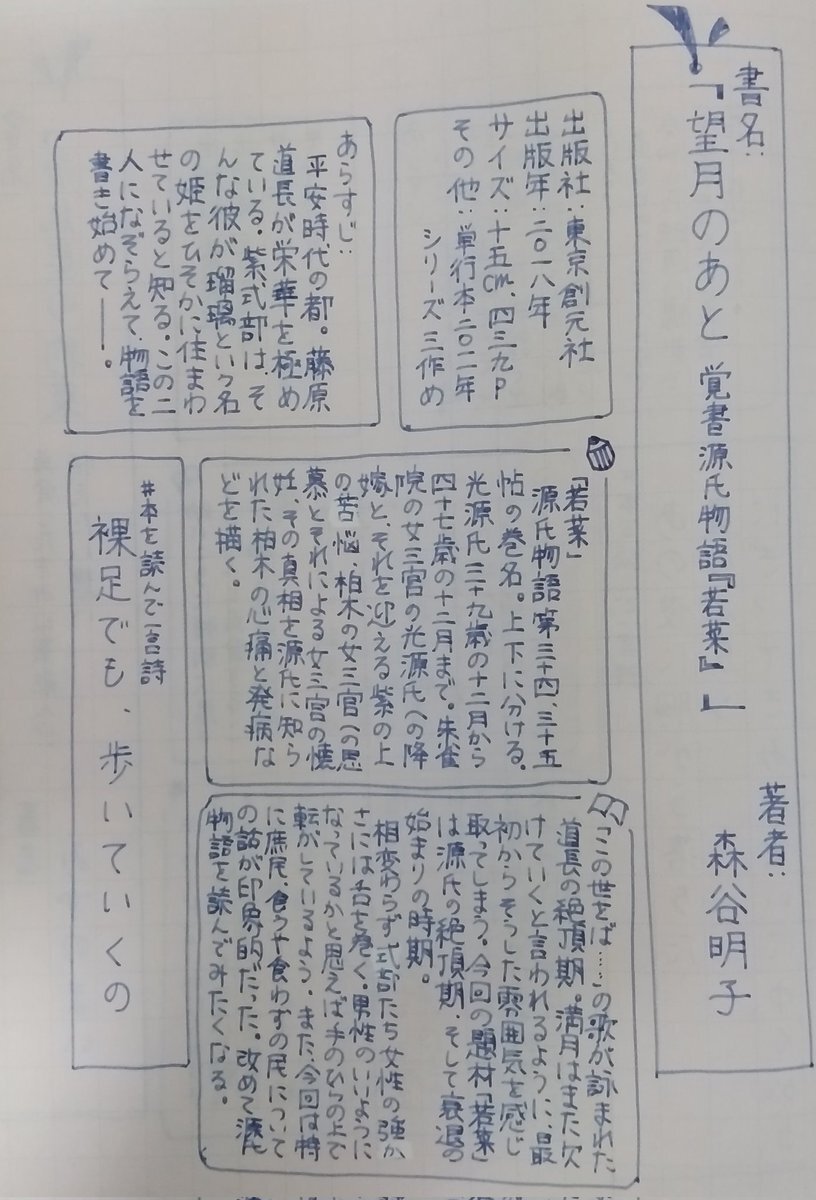 書名:
『望月のあと 覚書源氏物語『若菜』』
著者:
森谷明子
出版社:東京創元社
出版年:二〇一八年
サイズ:十五cm、四三九P
その他:単行本二〇一一年
シリーズ三作め
あらすじ:
平安時代の都。藤原
道長が栄華を極め
ている。紫式部は、そ
んな彼が瑠璃という名
の姫をひそかに住まわ
せていると知る。この二
人になぞらえて、物語を
書き始めて――。
「若菜」
源氏物語第三十四、三十五
帖の巻名。上下に分ける。
光源氏三十九歳の十二月から
四十七歳の十二月まで。朱雀
院の女三宮の光源氏への降
嫁と、それを迎える紫の上
の苦悩、柏木の女三宮への思
慕とそれによる女三宮の懐
妊、その真相を源氏に知ら
れた柏木の心痛と発病な
どを描く。
「この世をば……」の歌が詠まれた
道長の絶頂期。満月はまた欠
けていくと言われるように、最
初からそうした雰囲気を感じ
取ってしまう。今回の題材「若菜」
は源氏の絶頂期、そして衰退の
始まりの時期。
相変わらず式部たち女性の強か
さには舌を巻く。男性のいいように
なっているかと思えば手のひらの上で
転がしているよう。また、今回は特
に庶民、食うや食わずの民について
の話が印象的だった。改めて源氏
物語を読んでみたくなる。
#本を読んで一言詩
裸足でも、歩いていくの